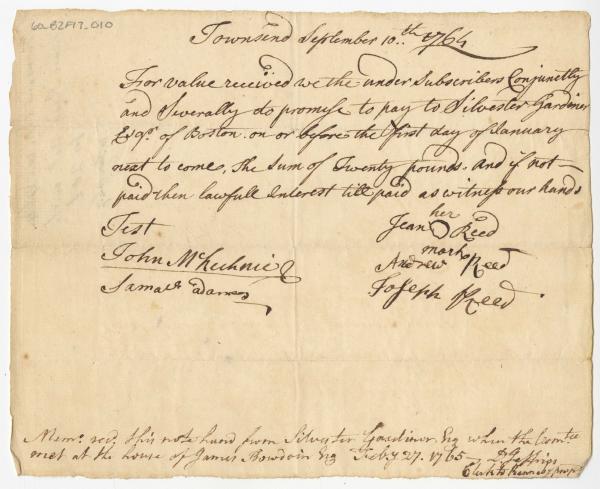 60_B2F17_010
Townsend September 10.th 1764
For value received we the under Subscribers Conjunctly
and Severally do promise to pay to Silvester Gardiner
Esqr. of Boston on or before the first day of January
next to come, The Sum of Twenty pounds. And if not
paid then lawfull Interest till paid as witness our hands
Test
her
Jean Reed
mark
John McKechnie
Andrew Reed
Samuel adams
Joseph Reed
Memo. recd. this note hand from Silvester Gardiner Esq when the Comtee
met at the house of James Bowdoin Esq Feby 27. 1765
D Jeffries
Clerk to Kennebeck Proprs